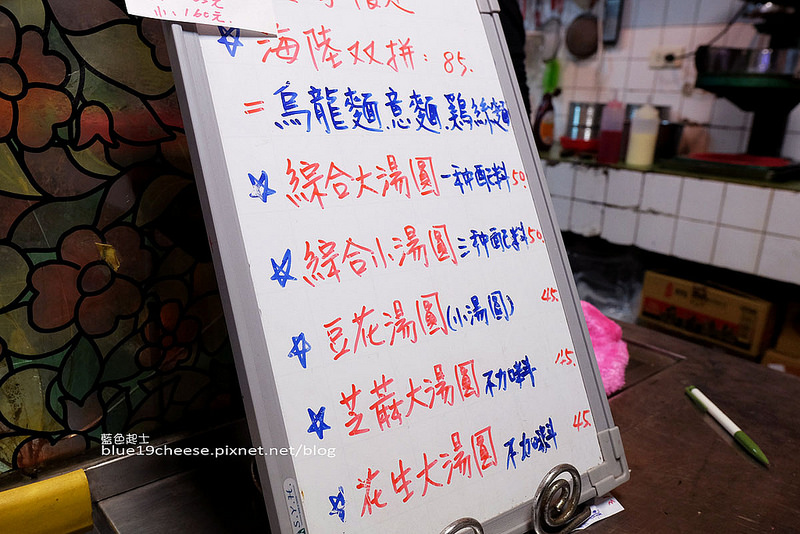 小、160元.
海陸双拼：85.
=烏龍麵.意麵.鷄絲麵
綜合大湯圓 一种配料 50.
綜合小湯圓 三种配料 50.
豆花湯圓(小湯圓) 45.
芝蔴大湯圓 不加料 45.
花生大湯圓 不加料 45.
藍色起士
blue19cheese.pixnet.net/blog